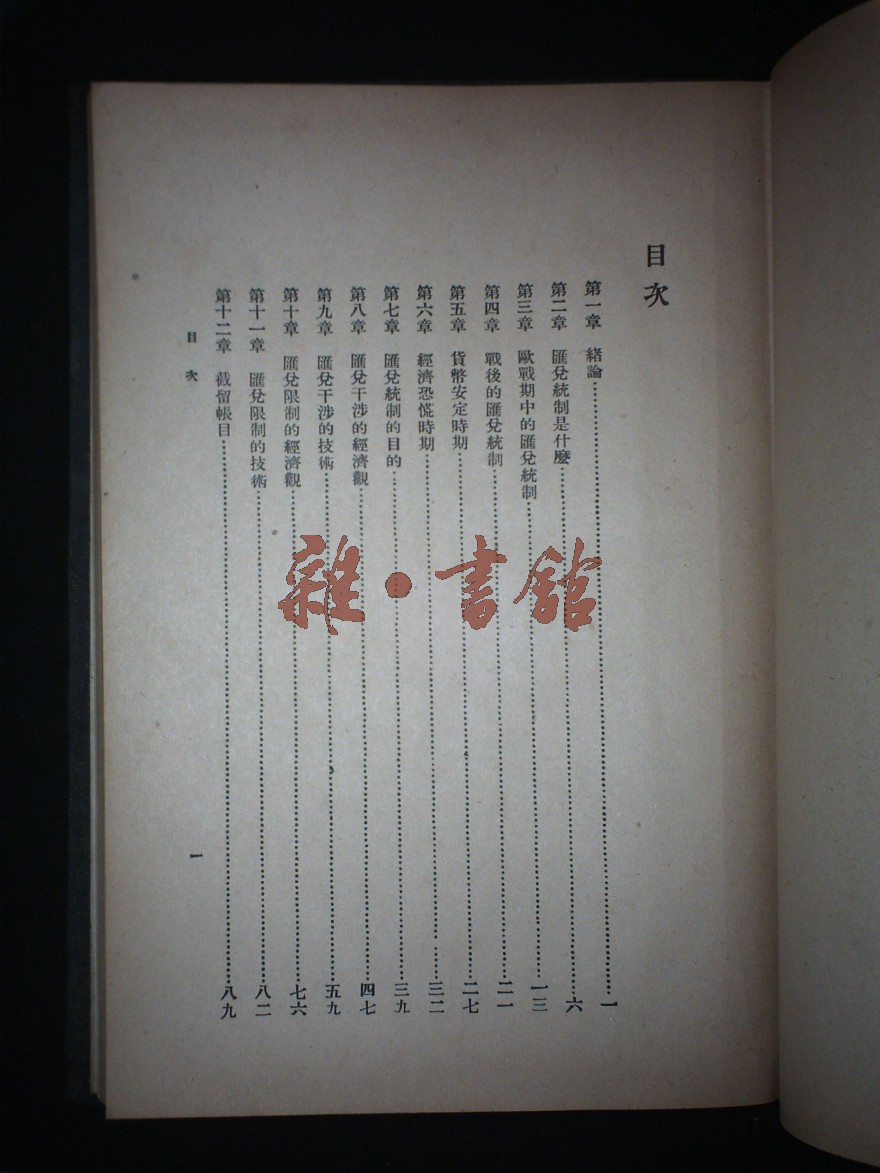 目次
第一章 緒論…………一
第二章 匯兌統制是什麼…………六
第三章 歐戰期中的匯兌統制…………一三
第四章 戰後的匯兌統制…………二一
第五章 貨幣安定時期…………二七
第六章 經濟恐慌時期…………三二
第七章 匯兌統制的目的…………三九
第八章 匯兌干涉的經濟觀…………四七
第九章 匯兌干涉的技術…………五九
第十章 匯兌限制的經濟觀…………七六
第十一章 匯兌限制的技術…………八二
第十二章 截留帳目…………八九
目次 一
雜·書館